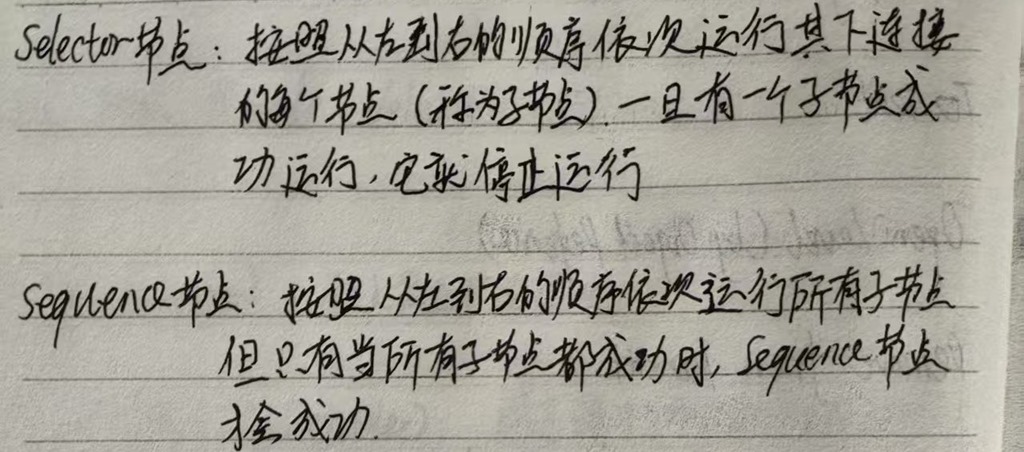 Selector节点：按照从左到右的顺序依次运行其下连接
的每个节点（称为子节点）.一旦有一个子节点成
功运行，它就停止运行
Sequence节点：按照从左到右的顺序依次运行所有子节点
但只有当所有子节点都成功时，Sequence节点
才会成功.